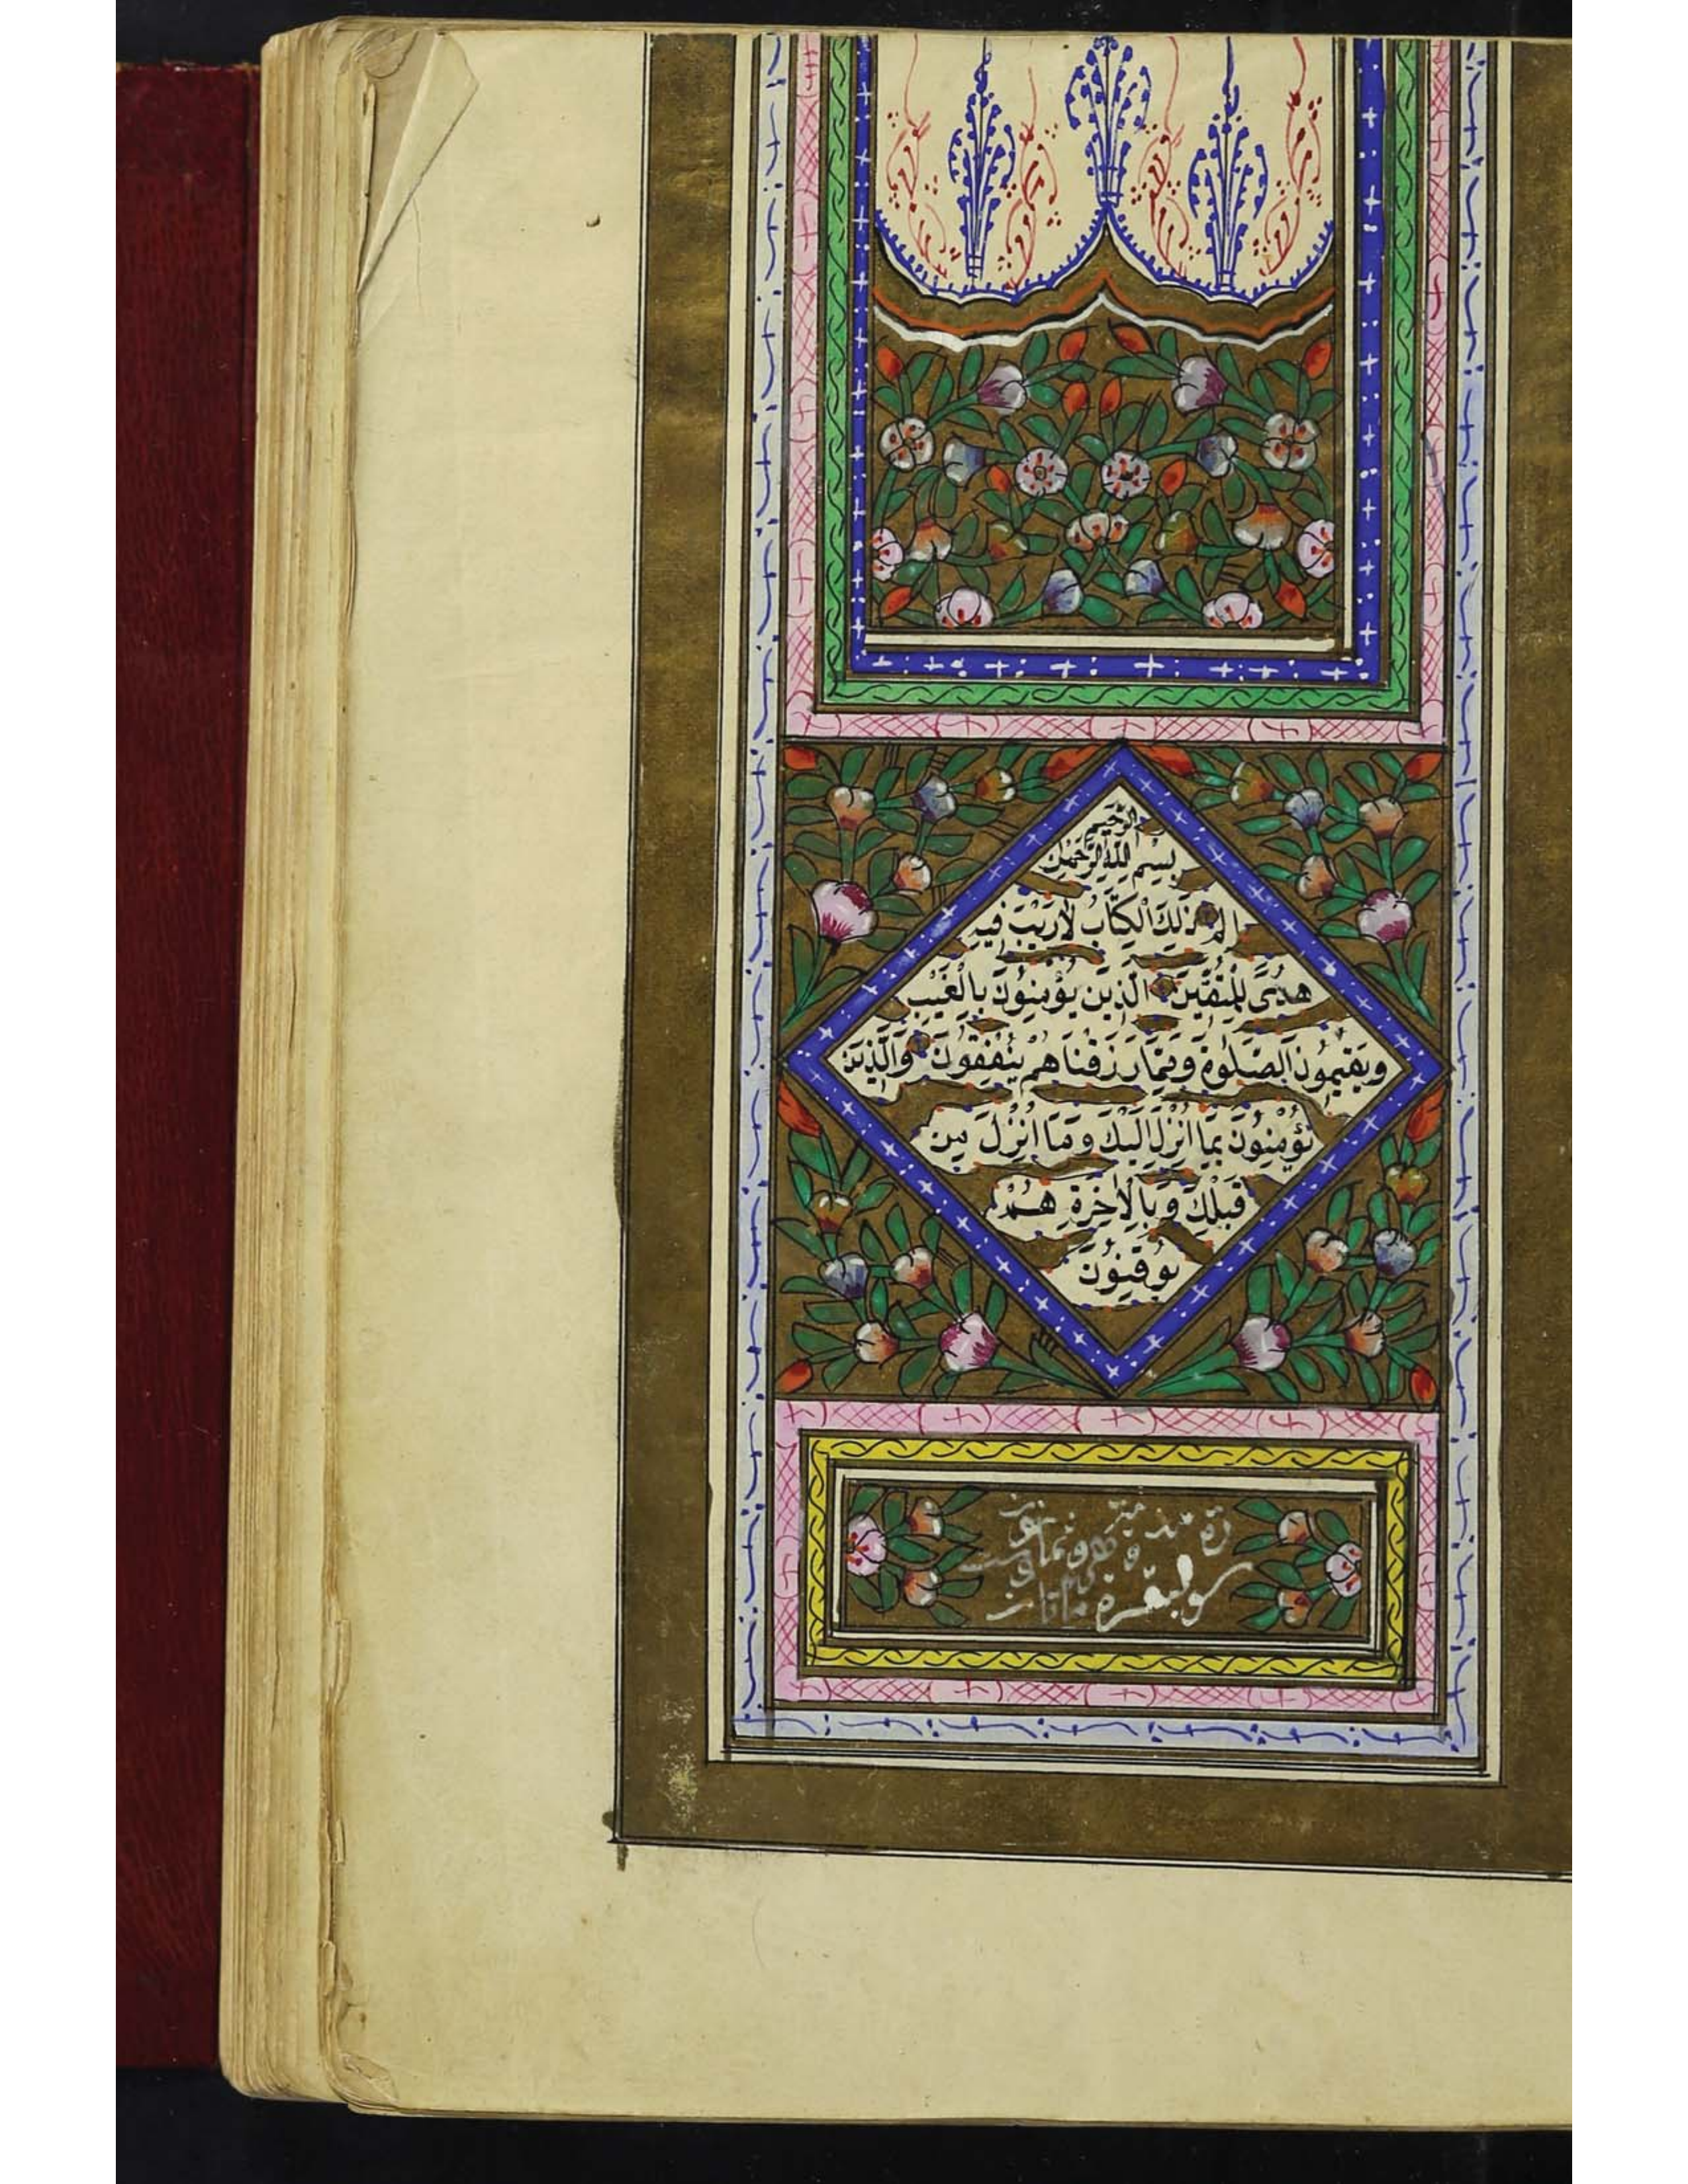 الرَّحِيمِ
بِسْمِ اللَّهِ الرَّحْمَٰنِ
الم ذَلِكَ الْكِتَابُ لَا رَيْبَ فِيهِ
هُدًى لِلْمُتَّقِينَ الَّذِينَ يُؤْمِنُونَ بِالْغَيْبِ
وَيُقِيمُونَ الصَّلَوةَ وَمِمَّا رَزَقْنَاهُمْ يُنْفِقُونَ وَالَّذِينَ
يُؤْمِنُونَ بِمَا اُنْزِلَ اِلَيْكَ وَمَا اُنْزِلَ مِنْ
قَبْلِكَ وَبِالْاٰخِرَةِ هُمْ
يُوقِنُونَ